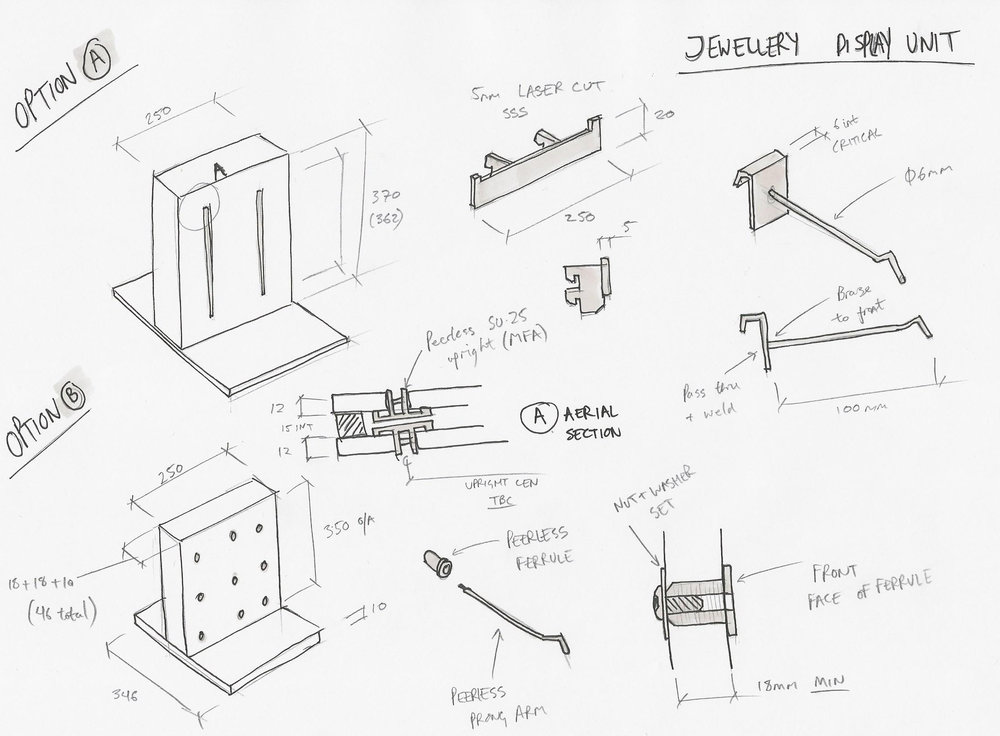 JEWELLERY DISPLAY UNIT
OPTION A
250
A
370
(362)
5mm LASER CUT
SSS
20
250
5
6 int
CRITICAL
Ø6mm
Braze
to front
Pass thru
+ weld
100mm
Peerless SU.25
upright (MFA)
12
15 INT
12
A AERIAL
SECTION
UPRIGHT CEN
TBC
OPTION B
250
350 o/A
18+18+10
(46 total)
10
346
PEERLESS
FERRULE
PEERLESS
PRONG ARM
NUT + WASHER
SET
FRONT
FACE OF FERRULE
18mm MIN